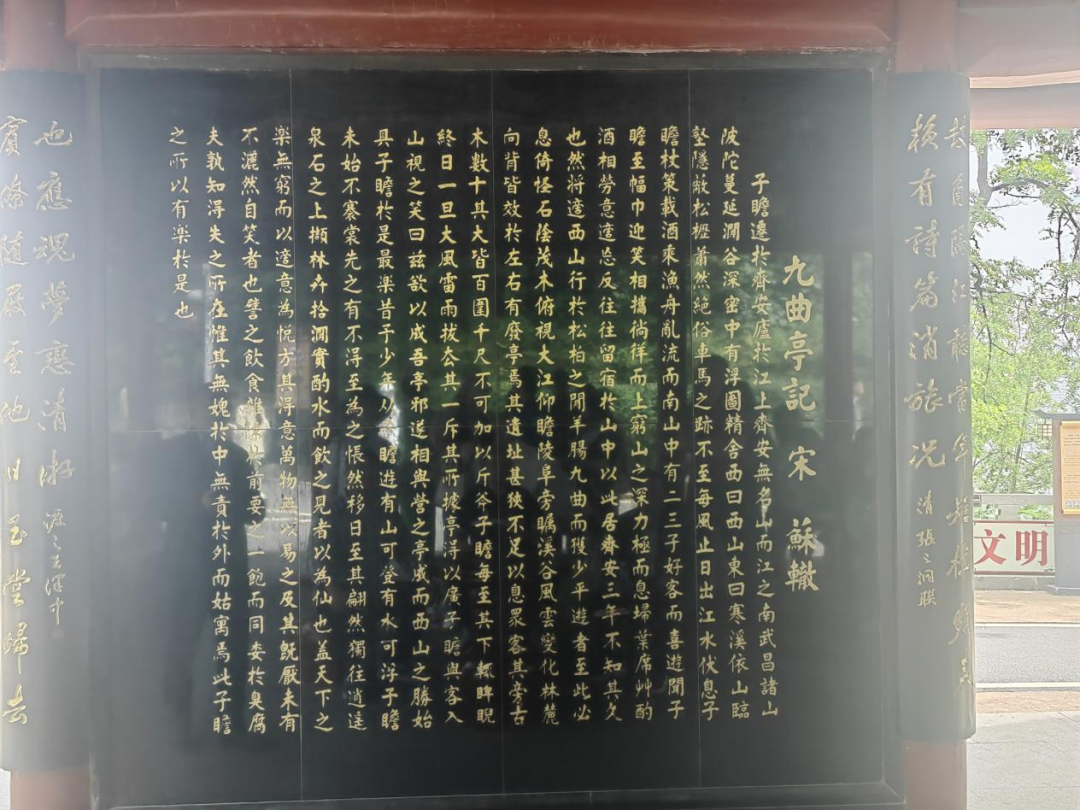 鼓角隔江聽當年
賴有詩篇消旅況 清 張之洞聯
九曲亭記 宋 蘇轍
子瞻遷於齊安廬於江上齊安無名山而江之南武昌諸山
陂陀蔓延澗谷深密中有浮圖精舍西曰西山東曰寒溪依山臨
壑隱蔽松櫪蕭然絕俗車馬之跡不至每風止日出江水伏息子
瞻杖策載酒乘漁舟亂流而南山中有二三子好客而喜遊聞子
瞻至幅巾迎笑相攜徜徉而上窮山之深力極而息掃葉席艸酌
酒相勞意適忘反往往留宿於山中以此居齊安三年不知其久
也然將適西山行於松柏之間羊腸九曲而獲少平遊者至此必
息倚怪石蔭茂木俯視大江仰瞻陵阜旁矚溪谷風雲變化林麓
向背皆效於左右有廢亭焉其遺址甚狹不足以息眾客其旁古
木數十其大皆百圍千尺不可加以斤斧子瞻每至其下輒睥睨
終日一旦大風雷雨拔去其一斥其所據亭得以廣子瞻與客入
山視之笑曰茲欲以成吾亭邪遂相與營之亭成而西山之勝始
具子瞻於是最楽昔予少年從子瞻遊有山可登有水可浮子瞻
未始不褰裳先之有不得至為之悵然移日至其翩然獨往逍遙
泉石之上擷林卉拾澗實酌水而飲之見者以為仙也蓋天下之
楽無窮而以適意為悅方其得意萬物無以易之及其既厭未有
不灑然自笑者也譬之飲食雜陳於前要之一飽而同委於臭腐
夫孰知得失之所在惟其無媿於中無責於外而姑寓焉此子瞻
之所以有楽於是也
賓僚隨屐至他日玉堂歸去
也應魂夢戀清湘
文明